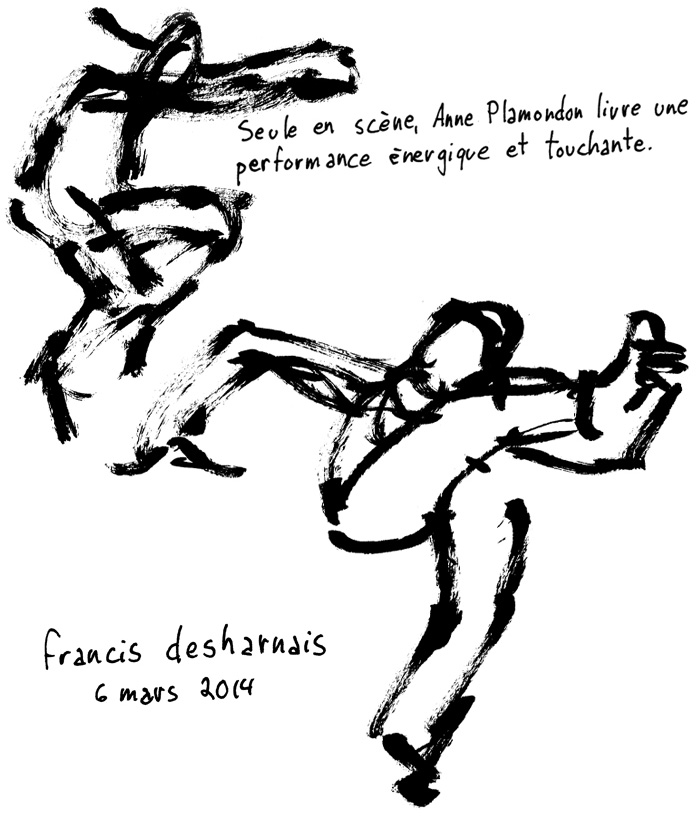 Seule en scène, Anne Plamondon livre une
performance ènergique et touchante.
francis desharnais
6 mars 2014